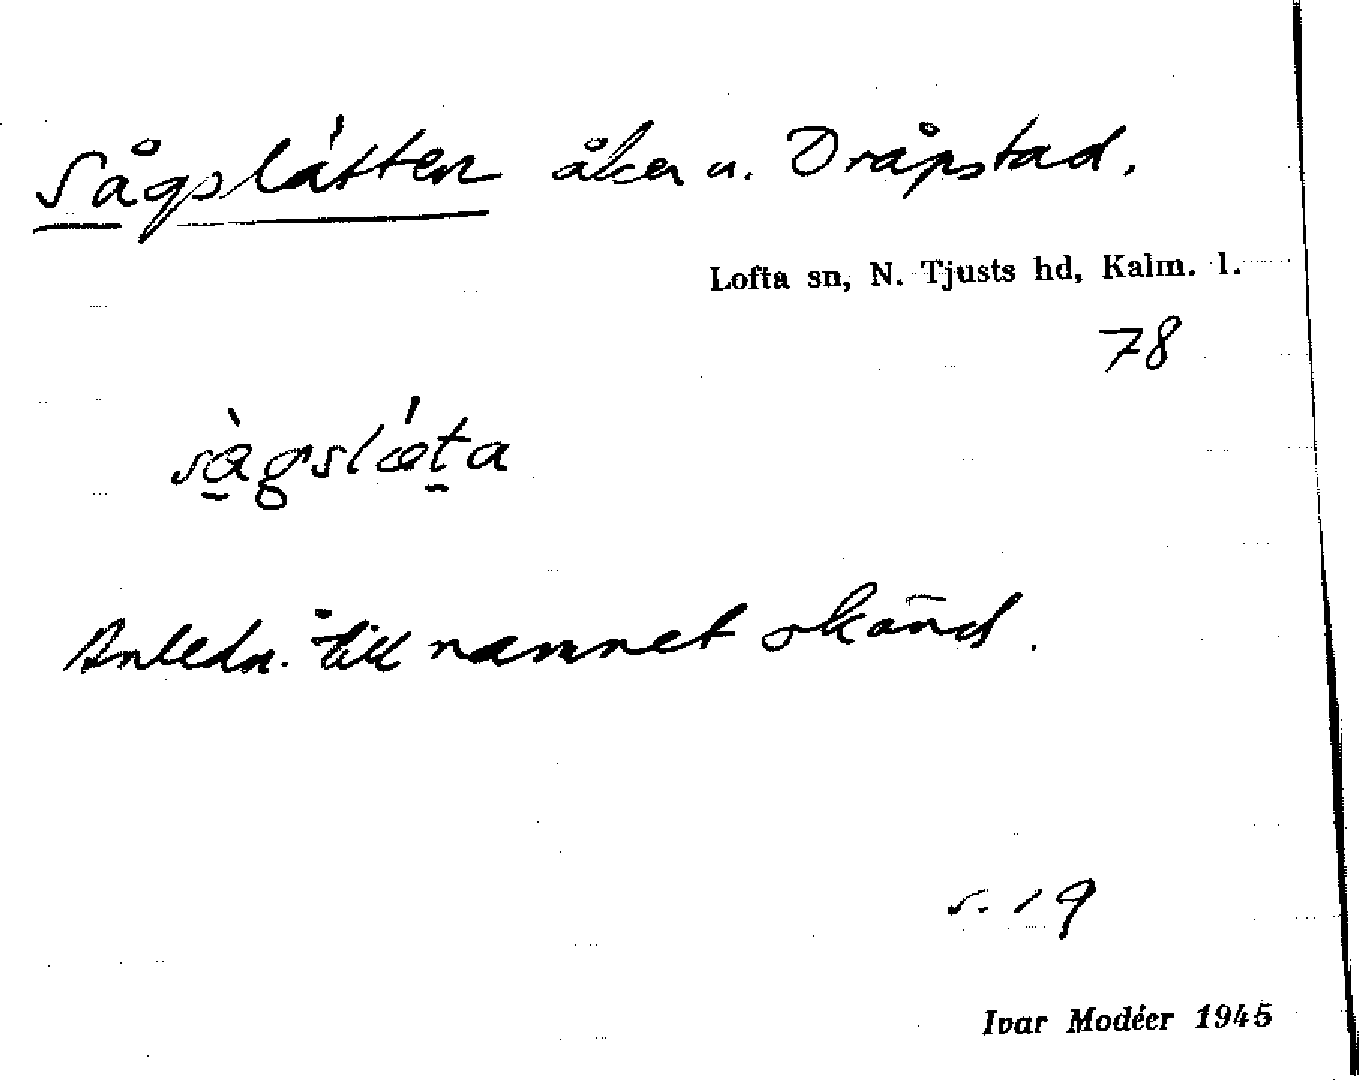 Sågslåtten åker u. Dråpstad.
Lofta sn, N. Tjusts hd, Kalm. l.
78
Anledn. till namnet okänd.
s. 19
Ivar Modéer 1945